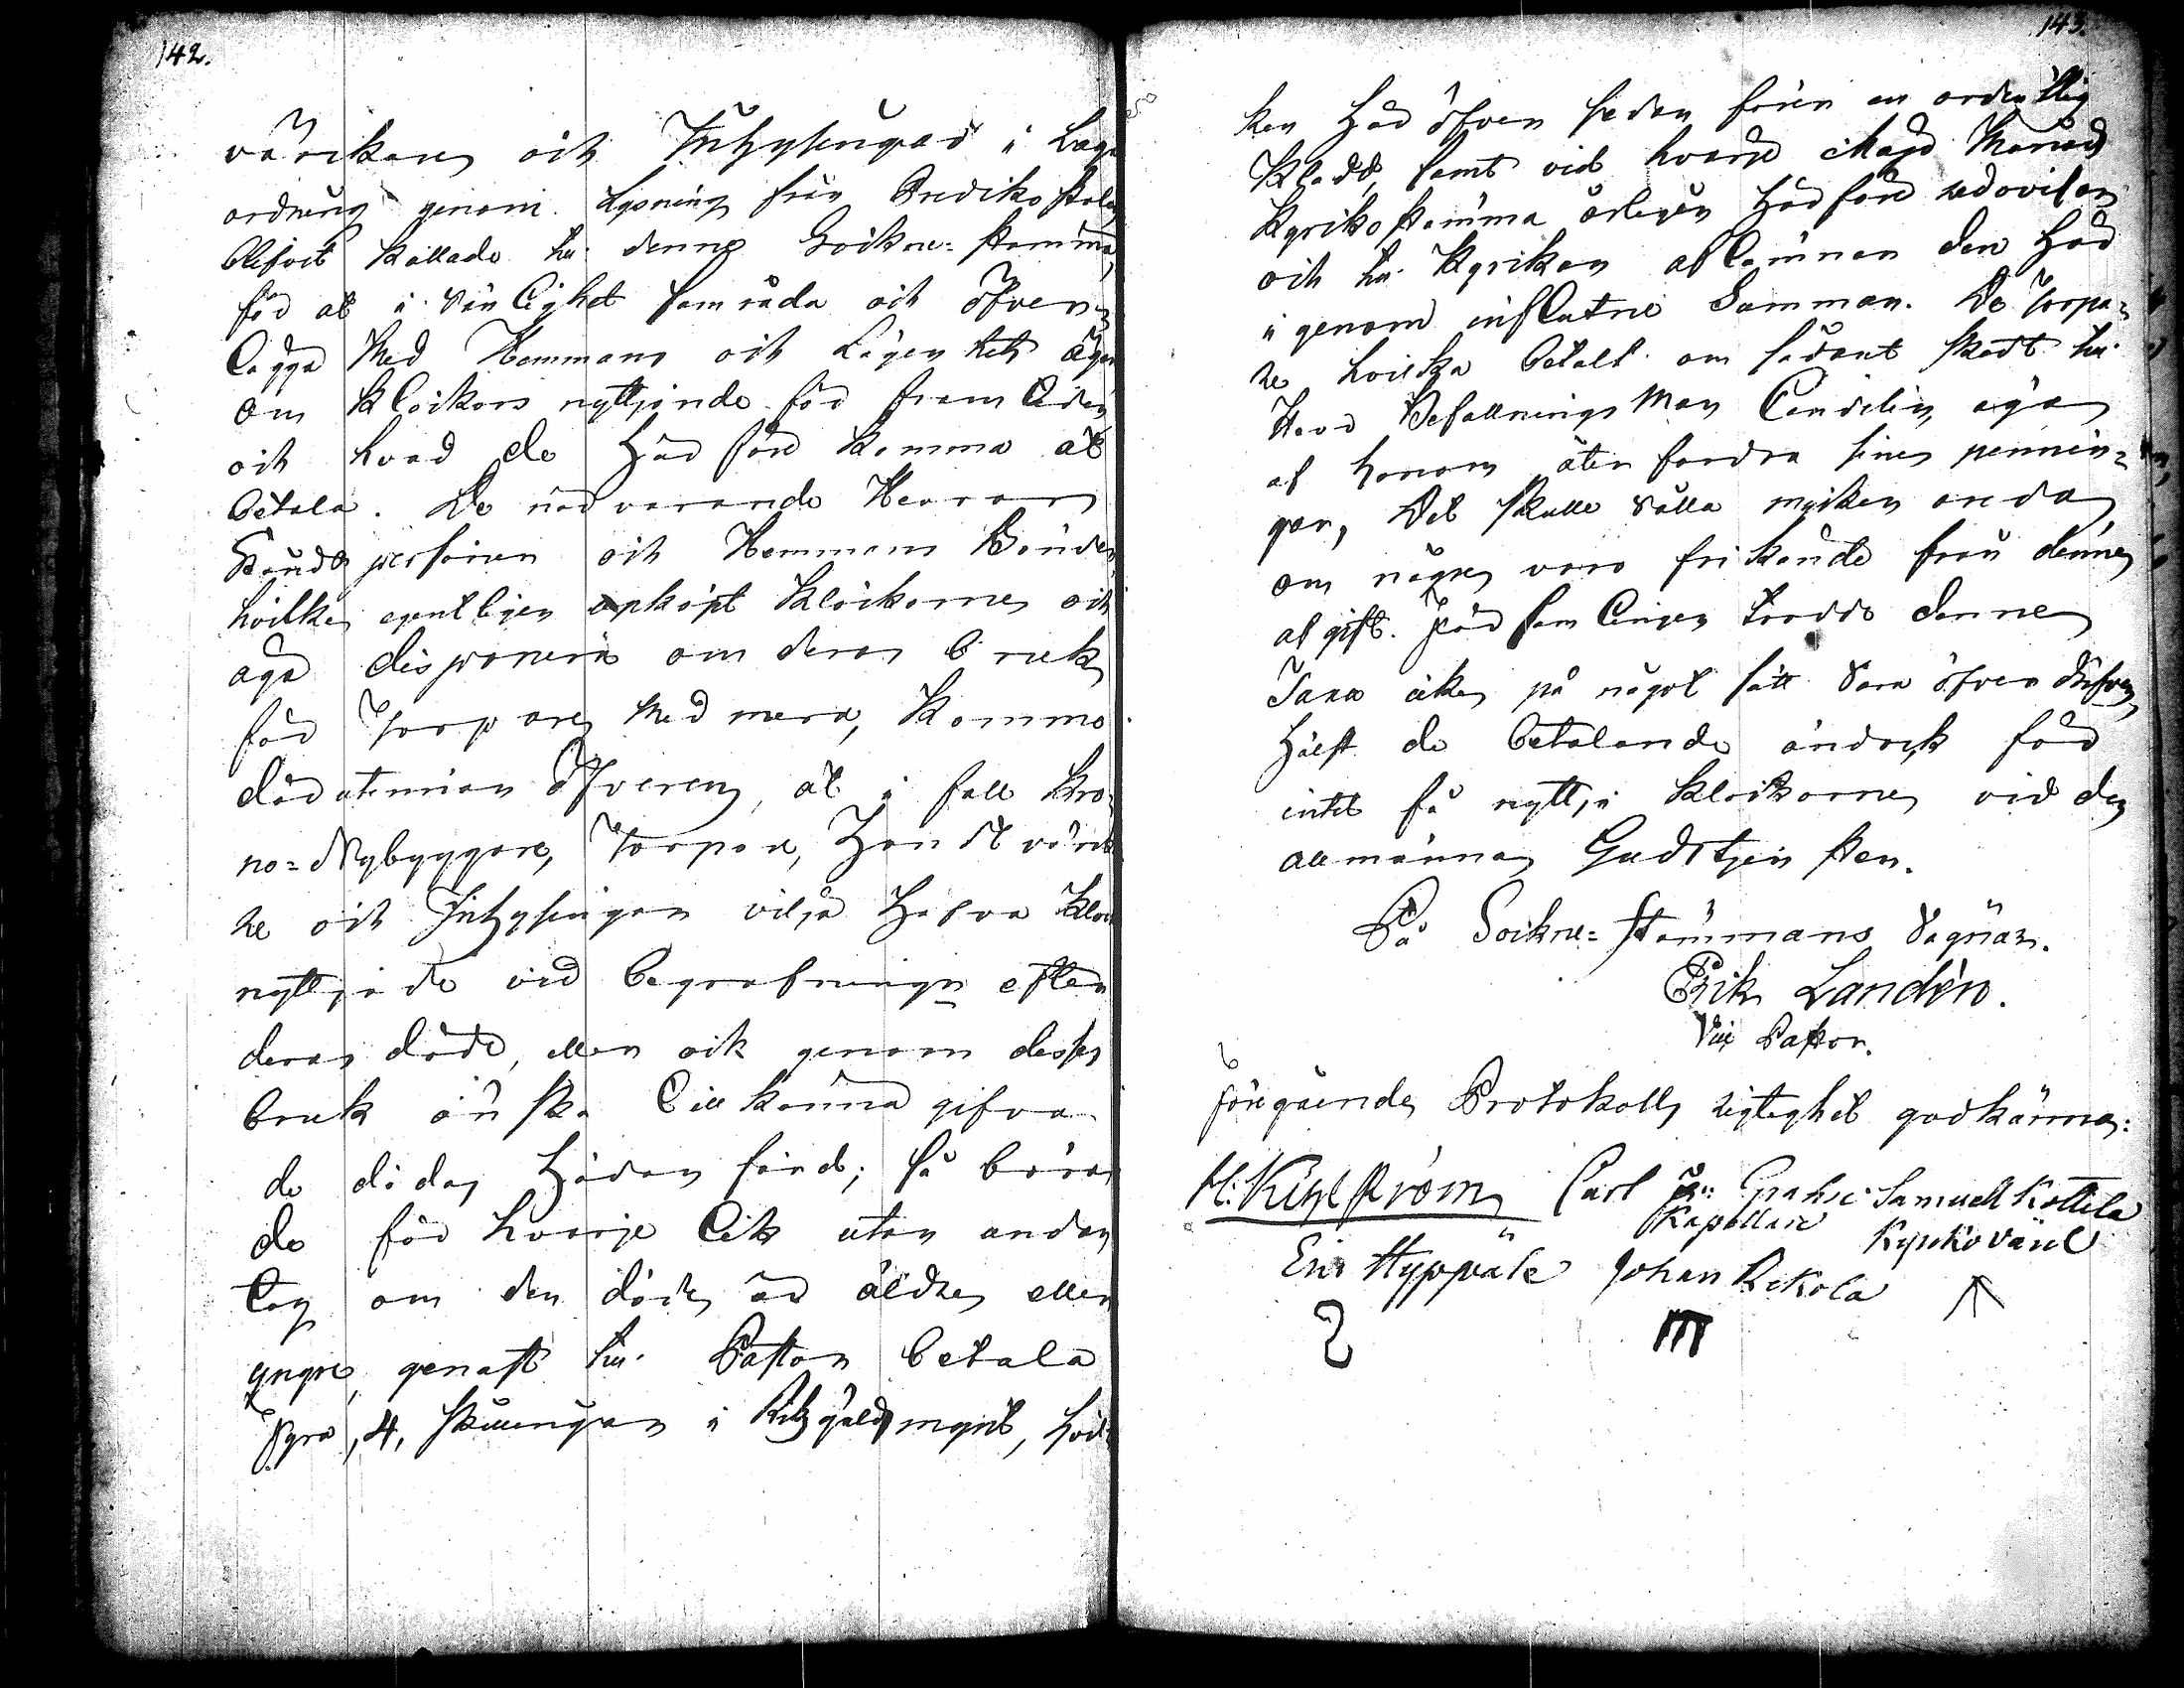 142.
värkare och Inhysingar i Laga
ordning genom Lysning från Prediko stolen
blifvit kallade till denne Sockne-stämma,
för at i vänlighet samråda och öfverens
lägga med Hemmans och Lägenhets ägare
om Klockors nyttjande för framtiden
och hvad de härföre komma at
betala. De närvarande Herrar
Stånds personer och Hemmans Bönder
hvilka egentligen upköpt Klockorne och
äga disponera om deras bruk
för Torpare med mera, komma
där utinnan öfverens, at i fall Kro-
no-Nybyggare, Torpare, Handtvärka
re och Inhysingar vilja hafva Kloc
nyttjade vid begrafningen efter
deras döde, eller ock genom dess
bruk önska tillkänna gifva
de dödas hädanfärd; så böra
de för hvarje Lik utan undan
tag om den döde är äldre eller
yngre, genast till Pastor betala
Fyra, 4, skillingar i Riksgälds mynt, hvil-
143.
ken här öfver sedan förer en ordentlig
Kladd, samt vid hvarje Maji Månads
Kyrkostämma årligen härföre redovisar
och till Kyrkan aflämnar den här
igenom influtne Summan. De Torpa-
re hvilka betalt om sådant skedt till
Herr Befallnings Man Candelin äga
af honom återfordra sine pennin-
gar, Det skulle vålla mycken oreda
om någre voro frikände från denne
afgift. Församlingen trodde denne
Taxa icke på något sätt vara öfverdrifven,
hälst de betalande ändock för
intet få nyttja Klockorne vid den
allmänna Gudstjensten.
På Sockne-Stämmans vägnar.
Erik Landén.
Vice Pastor.
Föregående Protokolls rigtighet godkännes:
M: Kihlström Carl Jn: Grape Samuell Kottila
Kapellane Kyrkovärd
Eric Hyppäle Johan Rekola